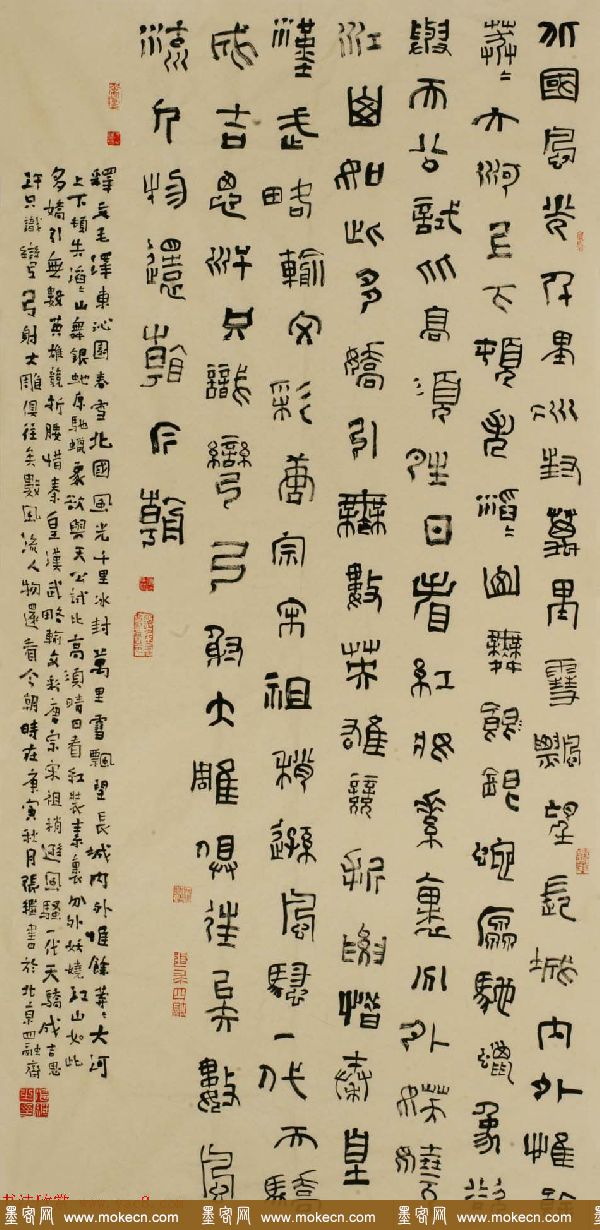 北國風光千里冰封萬里雪飄望長城內外惟餘
莽々大河上下頓失滔々山舞銀蛇原馳蠟象欲
與天公試比高須晴日看紅裝素裹分外妖嬈
江山如此多嬌引無數英雄競折腰惜秦皇
漢武略輸文彩唐宗宋祖稍遜風騷一代天驕
成吉思汗只識彎弓射大雕俱往矣數風
流人物還看今朝
釋文毛澤東沁園春雪北國風光千里冰封萬里雪飄望長城內外惟餘莽々大河
上下頓失滔々山舞銀蛇原馳蠟象欲與天公試比高須晴日看紅裝素裹分外妖嬈江山如此
多嬌引無數英雄競折腰惜秦皇漢武略輸文彩唐宗宋祖稍遜風騷一代天驕成吉思
汗只識彎弓射大雕俱往矣數風流人物還看今朝時在庚寅秋月張繼書於北京四融齋
墨客网 www.mokecn.com 墨客网 www.mokecn.com 墨客网 www.mokecn.com